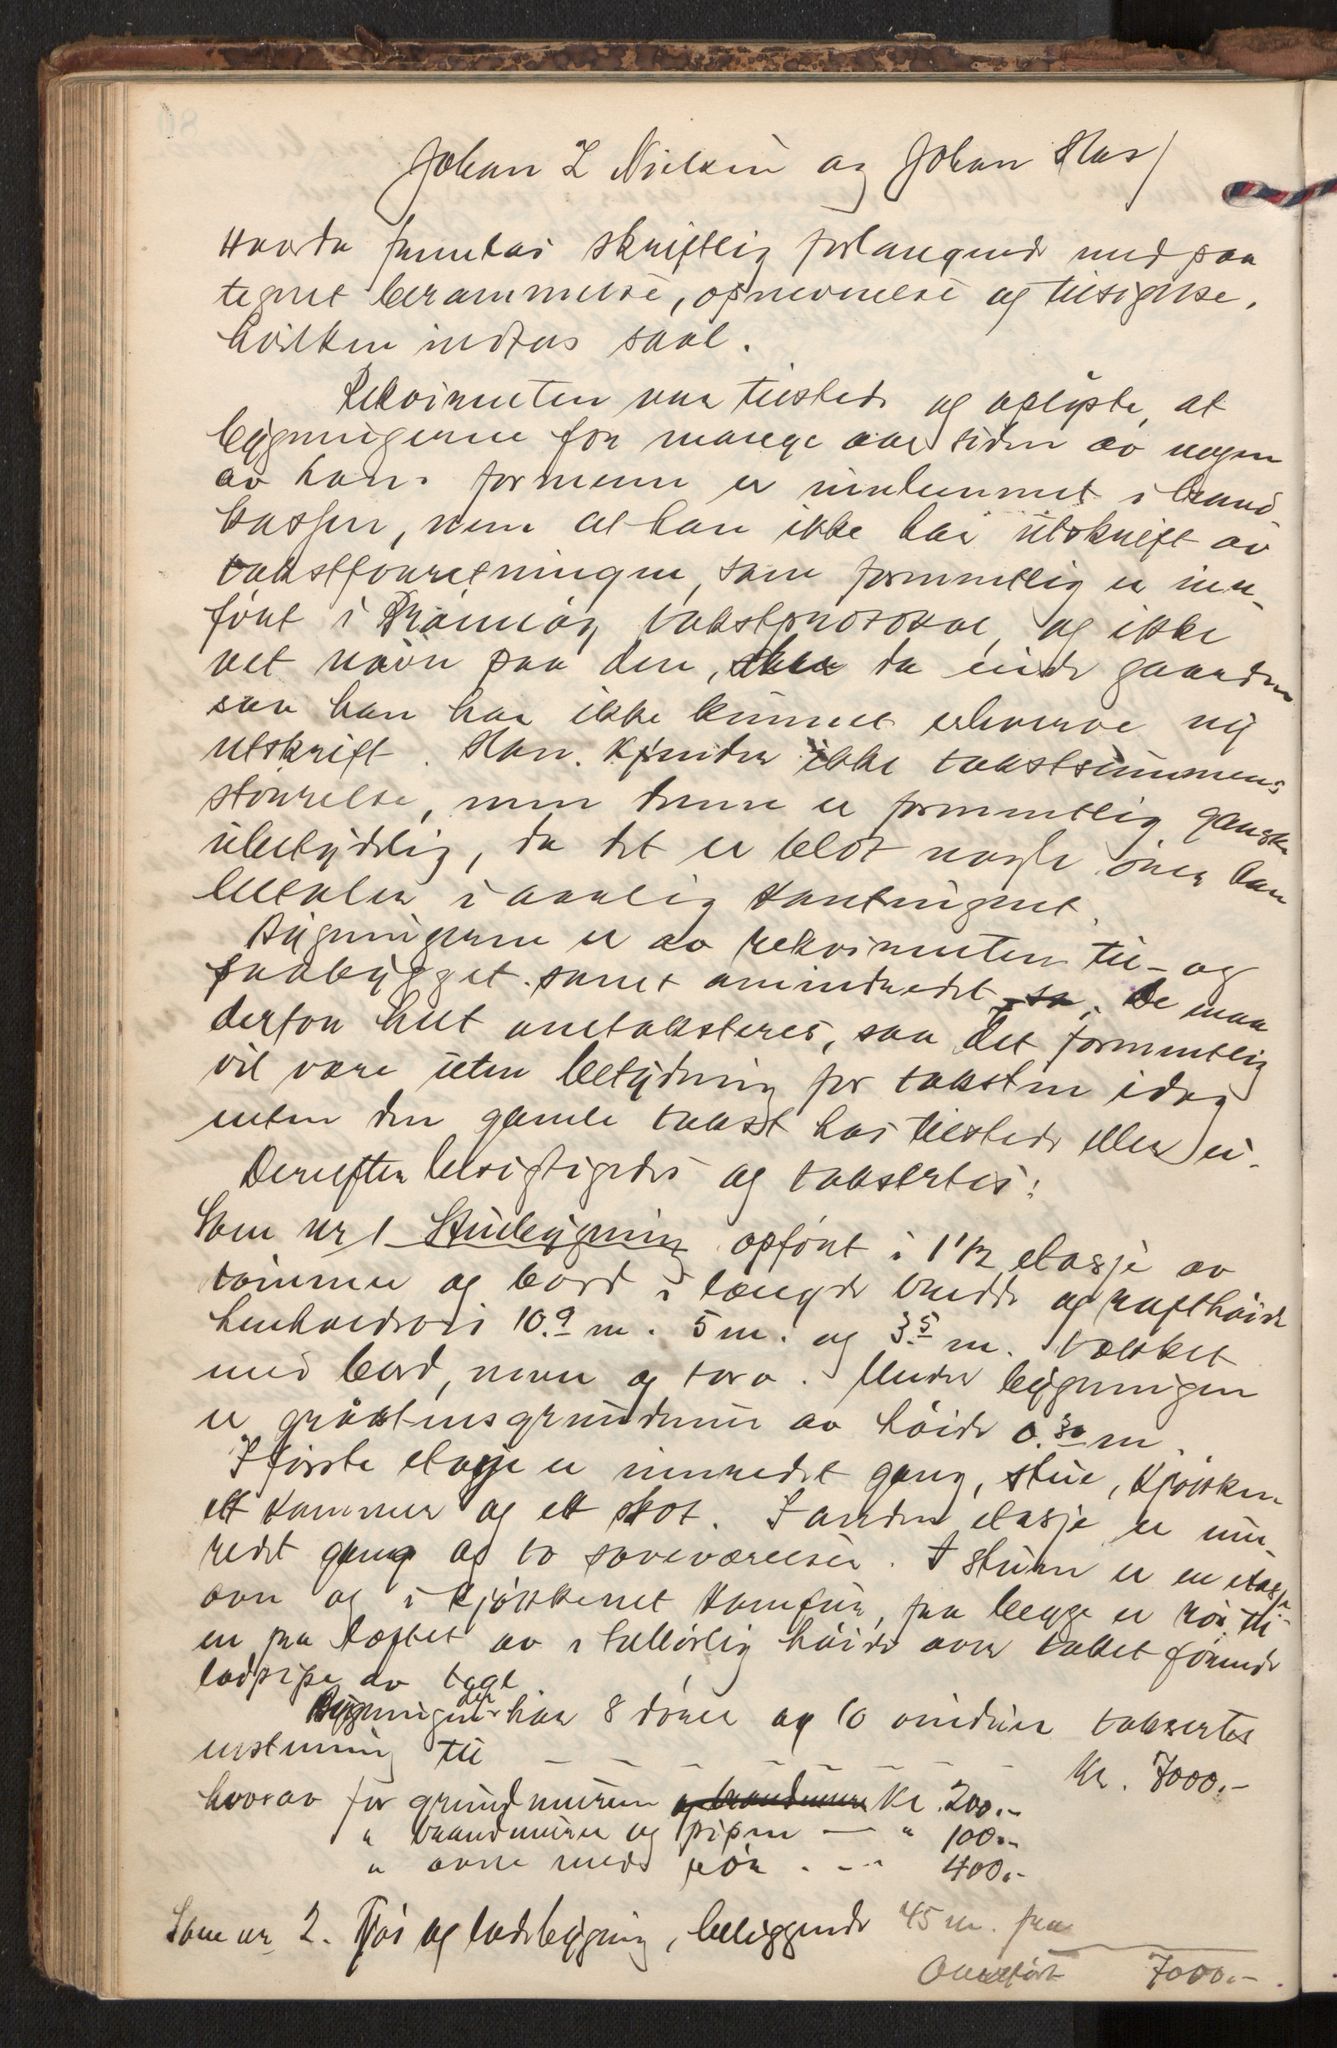 Johan L Nielsen og Johan Has/
Hvorda fremlas skriftlig forlangende med paa
tegnet berammelse, opnevnelse og tilsigelse,
hvilken indtas saal.
Rekvirenten var tilstede og oplyste, at
bygningerne for mange aar siden av nogen
av hans formenn er innlemmet i brand
kassen, men at han ikke har utskrift av
takstforretningen, som formentlig er inn-
ført i Brønnøy takstprotokol, og ikke
vet navn paa den, da eiede gaarden
saa han har ikke kunnet erhverve ny
utskrift. Han kjender ikke takstsummens
størrelse, men denne er formentlig ganske
ubetydelig, da det er blot nogle ører han
betaler i aarlig kontingent.
Bygningerne er av rekvirenten til- og
paabygget samt omindredet sa. De maa
derfor helt omtaksteres, saa det formentlig
vil være uten betydning for taksten idag
enten den gamle takst has tilstede eller ei.
Derefter besigtigedes og taksertes:
Som nr 1 Stuebygning opført i 1 1/2 etasje av
tømmer og bord i længde bredde og rafthøide
henholdsvis 10.9 m. 5 m. og 3.5 m. tækket
med bord, never og torv. Under bygningen
er gråstensgrundmur av høide 0.30 m.
I første etasje er innredet gang, stue, kjøkken
ett kammer og ett skot. I anden etasje er inn-
redet gang og to soveværelser. I stuen er en etasje
ovn og i kjøkkenet komfur, fra begge er rør til
en fra loftet av i tilbørlig høide over taket førende
ladpipe av tegl
Bygningen der har 8 dører og 10 vinduer taksertes
enstemmig til — — — — — Kr. 7000.-
hvorav for grundmuren og brandmuren Kr. 200.-
" brandmuren og pipen — " 100.-
" ovne med rør . - - " 400.-
Som nr 2. Fjøs og ladebygning, beliggende 45 m. fra
Overført 7000.-